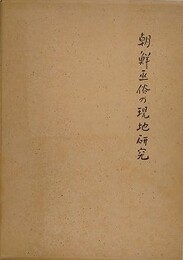 朝鮮巫俗の現地研究